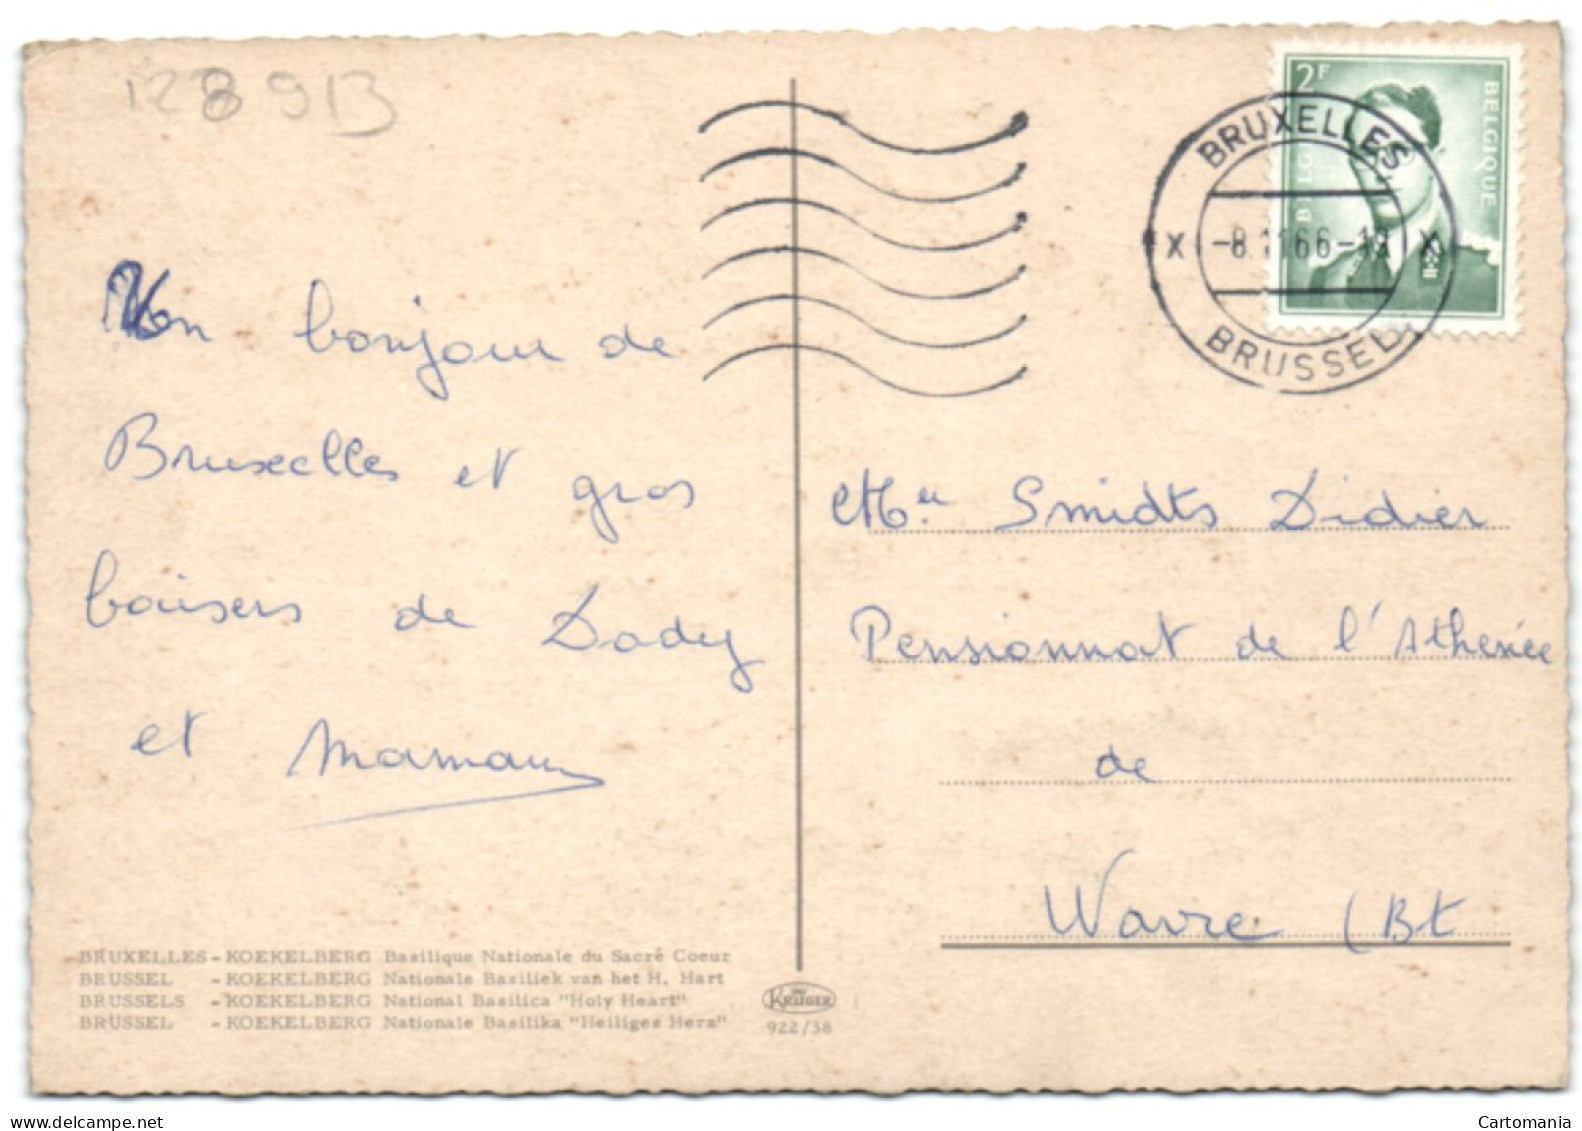 128913
2F
BELGIQUE
BELGIË
BRUXELLES
X -8.11 66-19 X
BRUSSEL
Un bonjour de
Bruxelles et gros
baisers de Dady
et Maman
Smidts Didier
Pensionnat de l'Athenée
de
Wavre (Bt
BRUXELLES - KOEKELBERG Basilique Nationale du Sacré Coeur
BRUSSEL - KOEKELBERG Nationale Basiliek van het H. Hart
BRUSSELS - KOEKELBERG National Basilica "Holy Heart"
BRÜSSEL - KOEKELBERG Nationale Basilika "Heiliges Herz"
KRÜGER
922/38
Cartomania